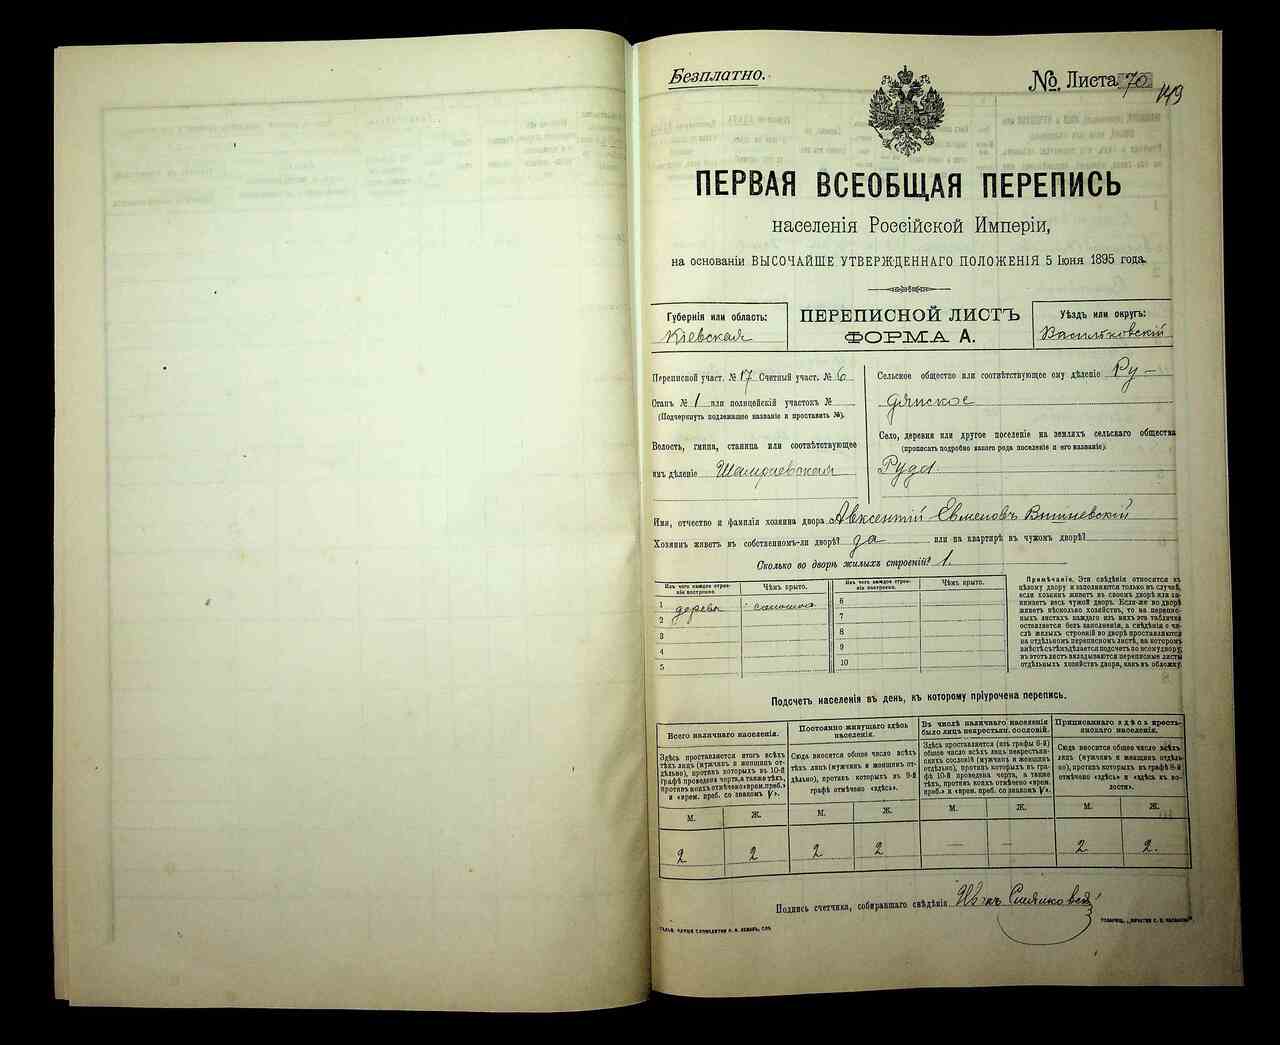 Безплатно.
№. Листа 70
149
ПЕРВАЯ ВСЕОБЩАЯ ПЕРЕПИСЬ
населенія Россійской Имперіи,
на основаніи ВЫСОЧАЙШЕ УТВЕРЖДЕННАГО ПОЛОЖЕНІЯ 5 Іюня 1895 года.
Губернія или область:
Кіевская
ПЕРЕПИСНОЙ ЛИСТЪ
ФОРМА А.
Уѣздъ или округъ:
Васильковскій
Переписной участ. № 17 Счетный участ. № 6
Станъ № 1 или полицейскій участокъ №
(Подчеркнуть подлежащее названіе и проставить №).
Волость, гмина, станица или соотвѣтствующее
имъ дѣленіе Шамраевская
Сельское общество или соотвѣтствующее ему дѣленіе Ру-
дянское
Село, деревня или другое поселеніе на земляхъ сельскаго общества
(прописать подробно какого рода поселеніе и его названіе):
Руда
Имя, отчество и фамилія хозяина двора Авксентій Евменовъ Вишневскій
Хозяинъ живетъ въ собственномъ-ли дворѣ? да или на квартирѣ въ чужомъ дворѣ?
Сколько во дворѣ жилыхъ строеній? 1.
Изъ чего каждое строеніе построено.
Чѣмъ крыто.
Изъ чего каждое строеніе построено.
Чѣмъ крыто.
1 дерева соломою
2
3
4
5
6
7
8
9
10
Примѣчаніе. Эти свѣдѣнія относятся къ
цѣлому двору и заполняются только въ случаѣ,
если хозяинъ живетъ въ своемъ дворѣ или занимаетъ
весь чужой дворъ. Если-же во дворѣ
живетъ нѣсколько хозяйствъ, то на переписныхъ
листахъ каждаго изъ нихъ эта табличка
оставляется безъ заполненія, а свѣдѣнія о числѣ
жилыхъ строеній во дворѣ проставляются
на отдѣльномъ переписномъ листѣ, на которомъ
вмѣстѣ съ тѣмъ дѣлается подсчетъ по всему двору;
въ этотъ листъ вкладываются переписные листы
отдѣльныхъ хозяйствъ двора, какъ въ обложку.
Подсчетъ населенія въ день, къ которому пріурочена перепись.
Всего наличнаго населенія.
Постоянно живущаго здѣсь населенія.
Въ числѣ наличнаго населенія было лицъ некрестьян. сословій.
Приписаннаго здѣсь крестьянскаго населенія.
Здѣсь проставляется итогъ всѣхъ
тѣхъ лицъ (мужчинъ и женщинъ отдѣльно),
противъ которыхъ въ 10-й
графѣ проведена черта, а также тѣхъ,
противъ коихъ отмѣчено «врем. преб.»
и «врем. преб. со знакомъ V».
Сюда вносится общее число всѣхъ
тѣхъ лицъ (мужчинъ и женщинъ отдѣльно),
противъ которыхъ въ 9-й
графѣ отмѣчено «здѣсь».
Здѣсь проставляется (изъ графы 6-й)
общее число всѣхъ лицъ некрестьянскихъ
сословій (мужчинъ и женщинъ
отдѣльно), противъ которыхъ въ графѣ
10-й проведена черта, а также
тѣхъ, противъ коихъ отмѣчено «врем.
преб.» и «врем. преб. со знакомъ V».
Сюда вносится общее число всѣхъ
лицъ (мужчинъ и женщинъ отдѣльно),
противъ которыхъ въ графѣ 8-й
отмѣчено «здѣсь» и «здѣсь въ волости».
М. Ж. М. Ж. М. Ж. М. Ж.
2 2 2 2 — — 2 2.
Подпись счетчика, собиравшаго свѣдѣнія